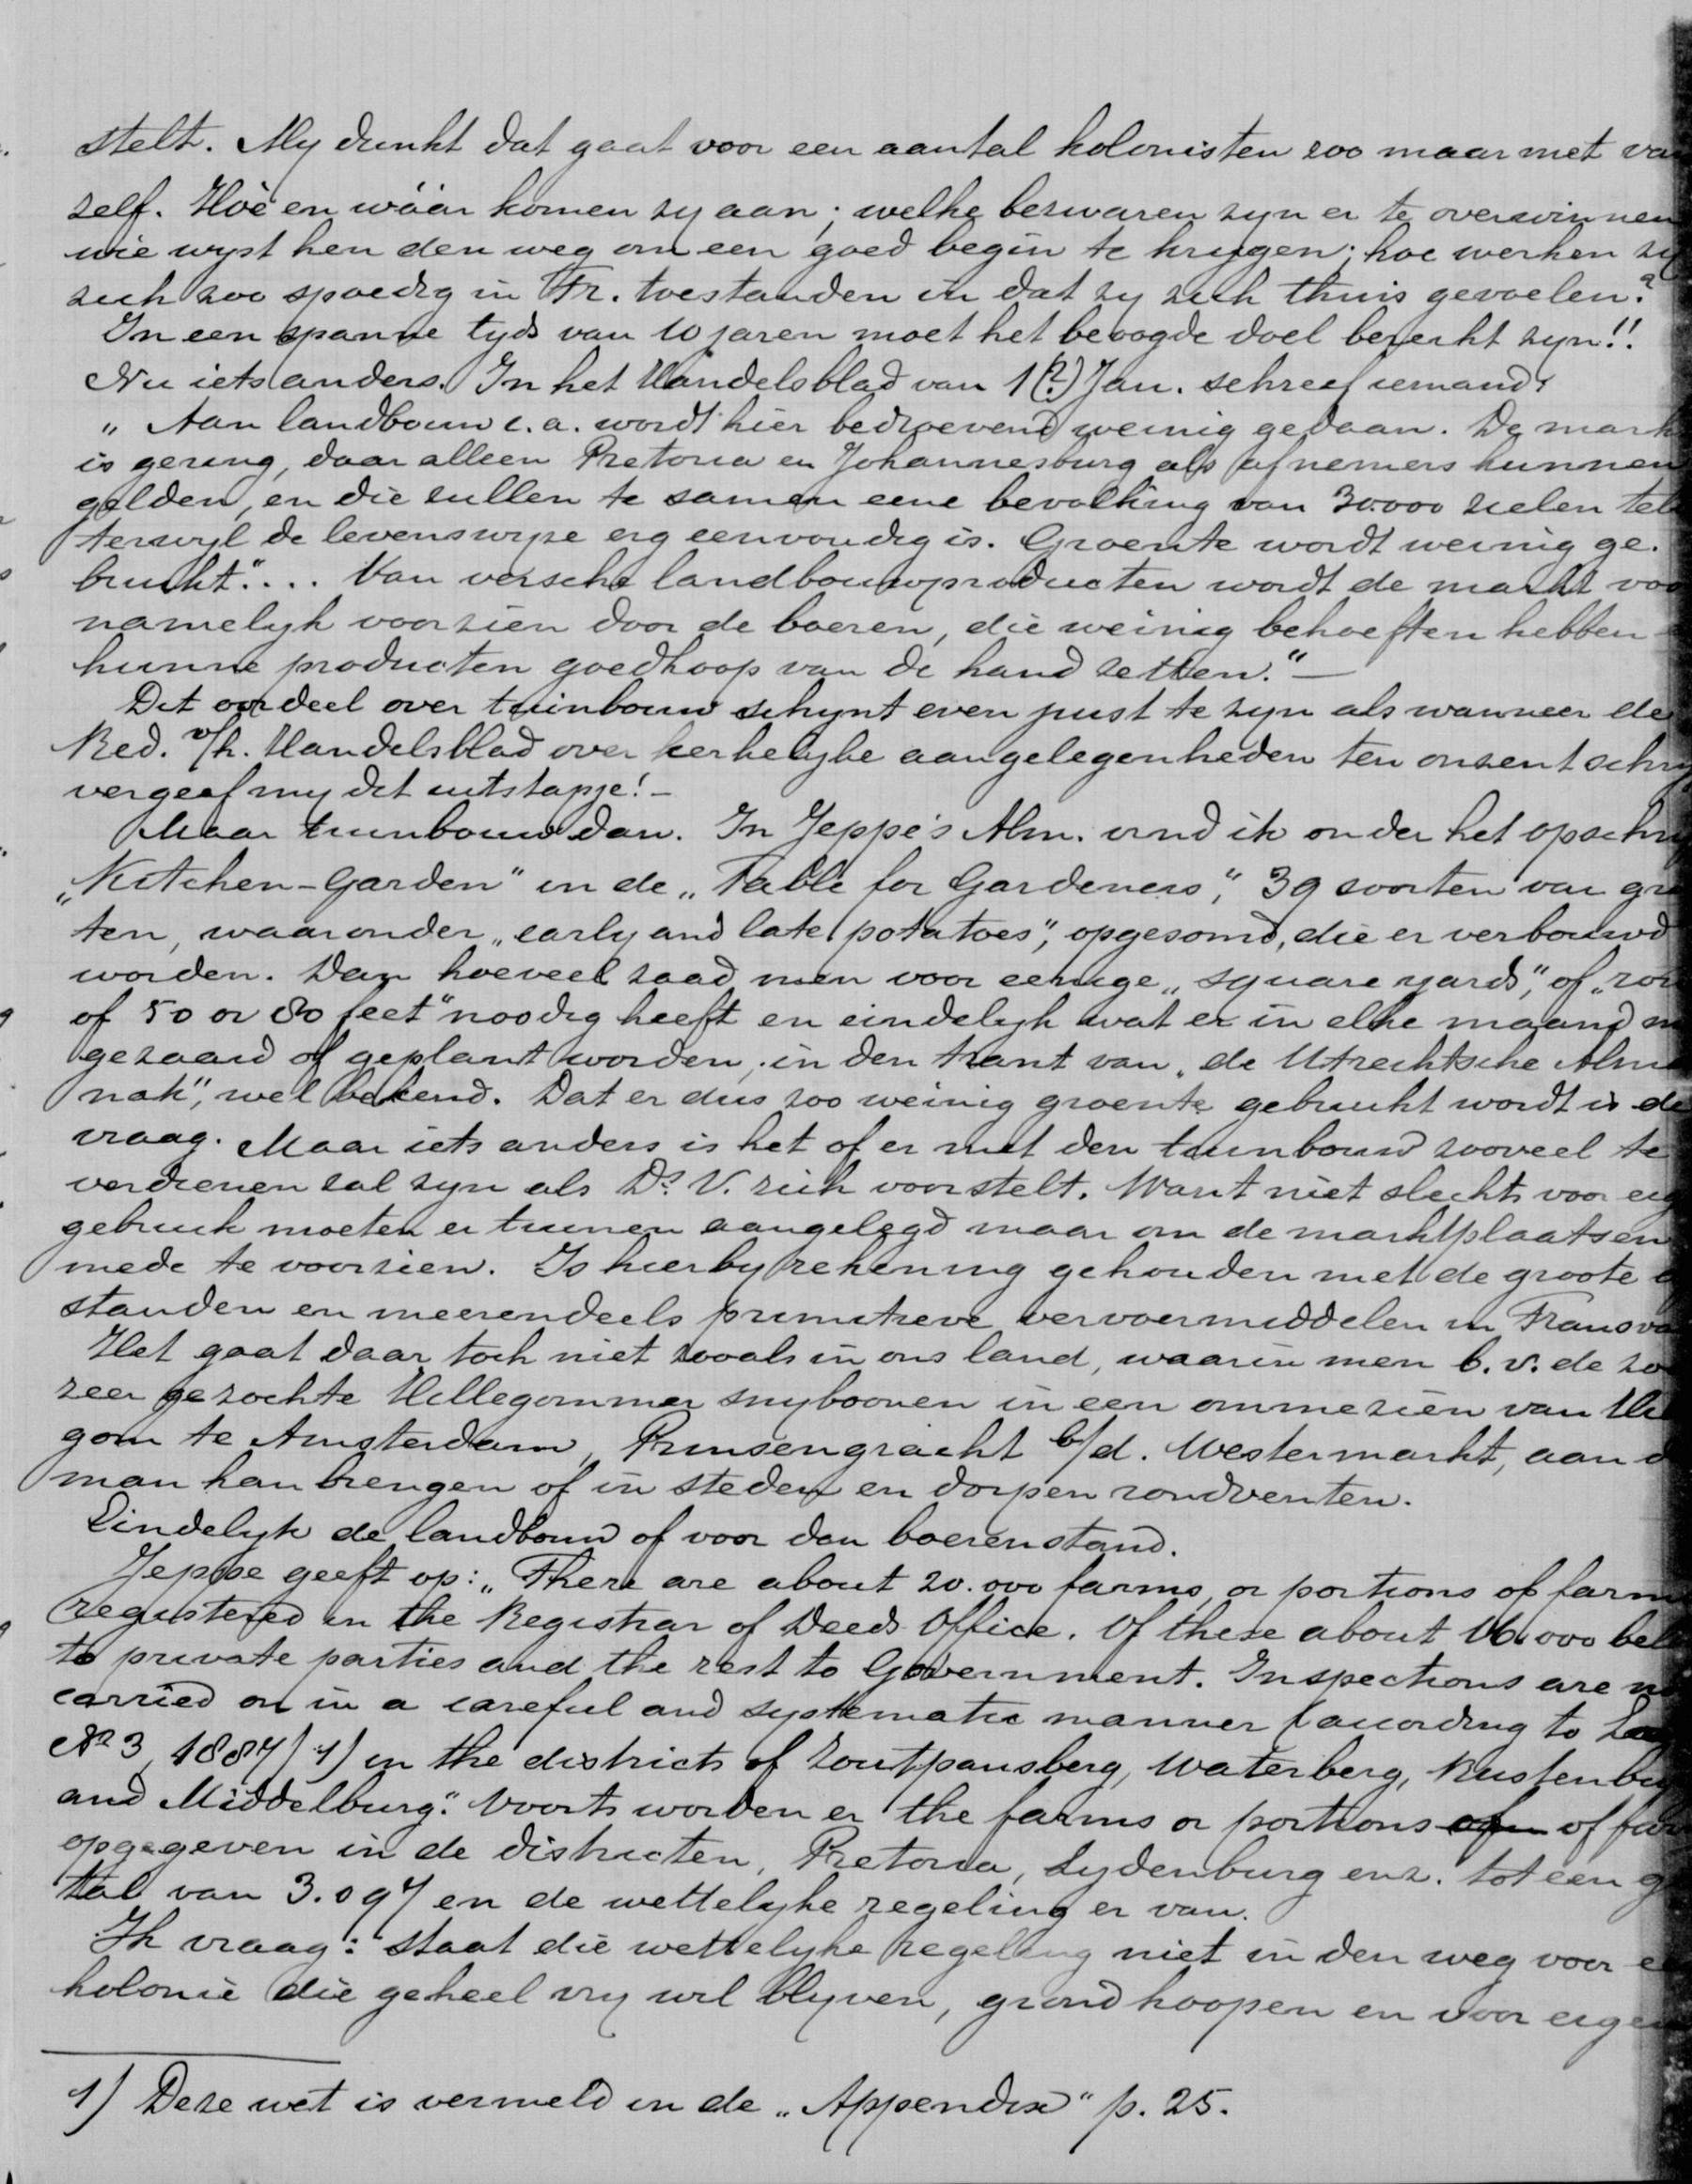 stelt. My dunkt dat gaat voor een aantal kolonisten zoo maar met van
zelf. Hoè en wáár komen zy aan; welke bezwaren zyn er te overwinnen
wie wyst hen den weg om een goed begin te krygen; hoe werken zy
zich zoo spoedig in Tr. toestanden in dat zy zich thuis gevoelen?
In een spanne tyds van 10 jaren moet het beoogde doel bereikt zyn!!
Nu iets anders. In het Handelsblad van 1(?) Jan. schreef iemand:
„Aan landbouw e.a. wordt hier bedroevend weinig gedaan. De mark
is gering, daar alleen Pretoria en Johannesburg als afnemers kunnen
gelden, en die zullen te samen eene bevolking van 30.000 zielen tel
terwyl de levenswyze erg eenvoudig is. Groente wordt weinig ge-
bruikt".... Van versche landbouwproducten wordt de markt voo
namelyk voorzien door de boeren, die weinig behoeften hebben
hunne producten goedkoop van de hand zetten." —
Dit oordeel over tuinbouw schynt even juist te zyn als wanneer de
Red. v/h. Handelsblad over kerkelyke aangelegenheden ten onzent schry
vergeef my dit uitstapje! –
Maar tuinbouw dan. In Jeppe's Alm. vind ik onder het opschri
„Kitchen-Garden" en de „Table for Gardeners", 39 soorten van gro
ten, waaronder „early and late potatoes", opgesomd, die er verbouwd
worden. Dan hoeveel zaad men voor eenige „square yards", of „row
of 50 or 80 feet" noodig heeft en eindelyk wat er in elke maand m
gezaaid of geplant worden, in den trant van „de Utrechtsche Alma
nak", wel bekend. Dat er dus zoo weinig groente gebruikt wordt is de
vraag. Maar iets anders is het of er met den tuinbouw zooveel te
verdienen zal zyn als Ds. V. zich voorstelt. Want niet slechts voor eig
gebruik moeten er tuinen aangelegd maar om de marktplaatsen
mede te voorzien. Is hierby rekening gehouden met de groote a
standen en meerendeels primitieve vervoermiddelen in Transva
Het gaat daar toch niet zooals in ons land, waarin men b.v. de zo
zeer gezochte Hillegommer snyboonen in een ommezien van Hil
gom te Amsterdam, Prinsengracht b/d. Westermarkt, aan d
man kan brengen of in steden en dorpen rondventen.
Eindelyk de landbouw of voor den boerenstand.
Jeppe geeft op: „There are about 20.000 farms, or portions of farm
registered in the Registrar of Deeds Office. Of these about 16.000 bel
to private parties and the rest to Government. Inspections are no
carried on in a careful and systematic manner (according to Law
No 3, 1887) 1) in the districts of Zoutpansberg, Waterberg, Rustenbu
and Middelburg." Voorts worden er the farms or portions of far
opgegeven in de districten, Pretoria, Lydenburg enz. tot een g
tal van 3.097 en de wettelyke regeling er van.
Ik vraag: staat die wettelyke regeling niet in den weg voor e
kolonie die geheel vry wil blyven, grond koopen en voor eigen
1) Deze wet is vermeld in de „Appendix" p. 25.